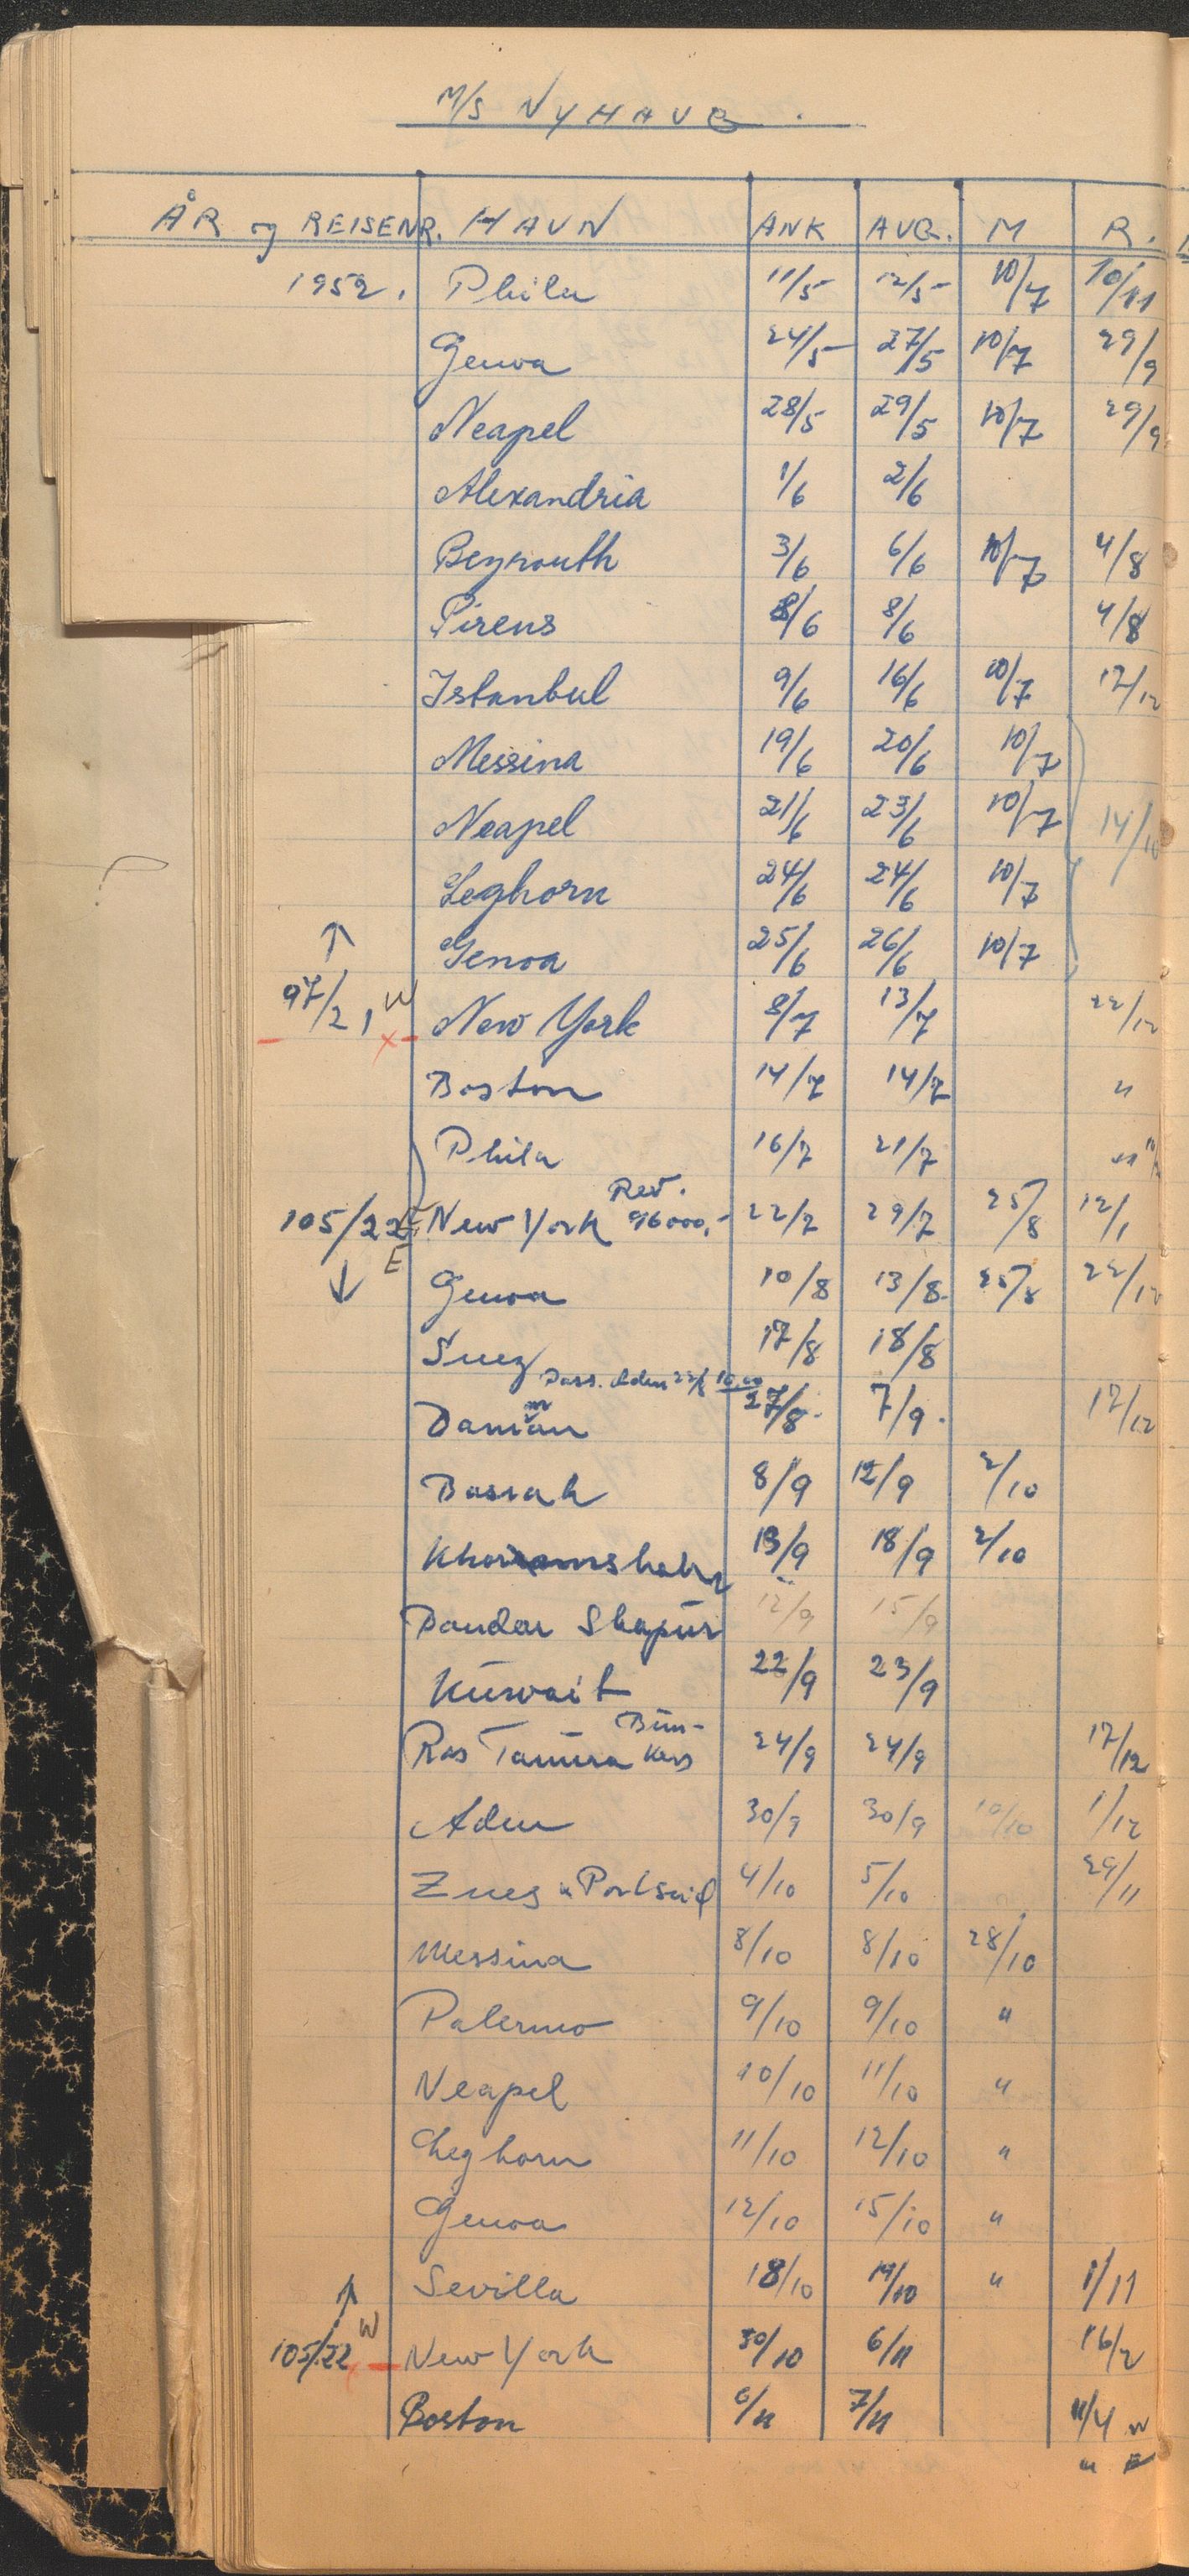 M/S NYHAUG.
ÅR og REISENR. HAVN ANK AVG. M R.
1952. Phila 11/5 12/5 10/7 10/11
Genoa 24/5 27/5 10/7 29/9
Neapel 28/5 29/5 10/7 29/9
Alexandria 1/6 2/6
Beyrouth 3/6 6/6 10/7 4/8
Pireus 8/6 8/6 4/8
Istanbul 9/6 16/6 10/7 12/12
Messina 19/6 20/6 10/7
Neapel 21/6 23/6 10/7 14/10
Leghorn 24/6 24/6 10/7
Genoa 25/6 26/6 10/7
97/21 W New York 8/7 13/7 22/12
Boston 14/7 14/7 "
Phila 16/7 21/7
105/22 E New York 96000,- 22/7 29/7 25/8 12/1
Genoa 10/8 13/8 25/8 22/12
Suez 17/8 18/8
Pass. Aden 23/8 10.00
Damman 27/8 7/9 17/12
Basrah 8/9 12/9 2/10
Khorramshahr 13/9 18/9 2/10
Bandar Shapur 12/9 15/9
Kuwait 22/9 23/9
Ras Tanura Bun-
kers 24/9 24/9 17/12
Aden 30/9 30/9 10/10 1/12
Zues " Portsaid 4/10 5/10 29/11
Messina 8/10 8/10 28/10
Palermo 9/10 9/10 "
Neapel 10/10 11/10 "
Leghorn 11/10 12/10 "
Genoa 12/10 15/10 "
Sevilla 18/10 19/10 " 1/11
105/22 W New York 30/10 6/11 16/2
Boston 6/11 7/11 11/4 W
" E